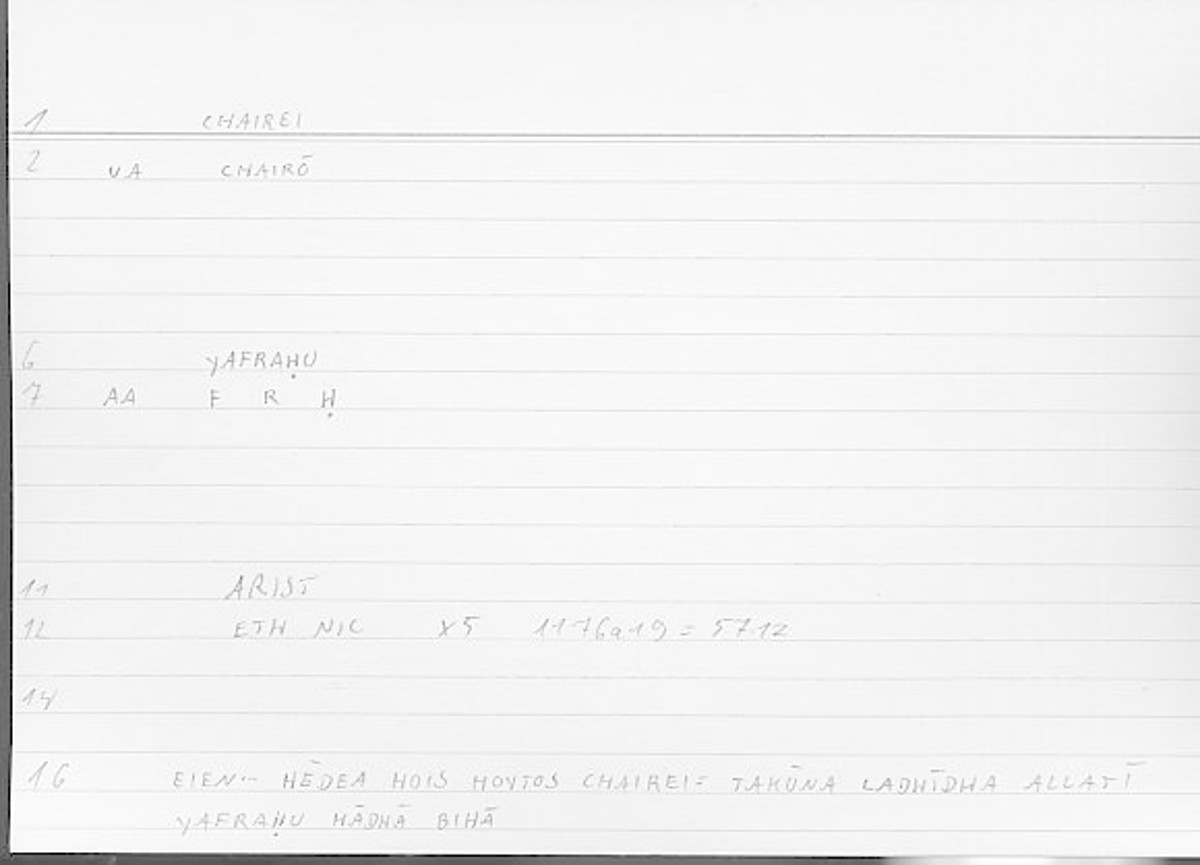 1 CHAIREI
2 VA CHAIRŌ
6 YAFRAḤU
7 AA F R Ḥ
11 ARIST
12 ETH NIC X5 1176a19 = 57.12
14
16 EIEN... HĒDEA HOIS HOYTOS CHAIREI = TAKŪNA LADHĪDHA ALLATĪ
YAFRAḤU HĀDHĀ BIHĀ